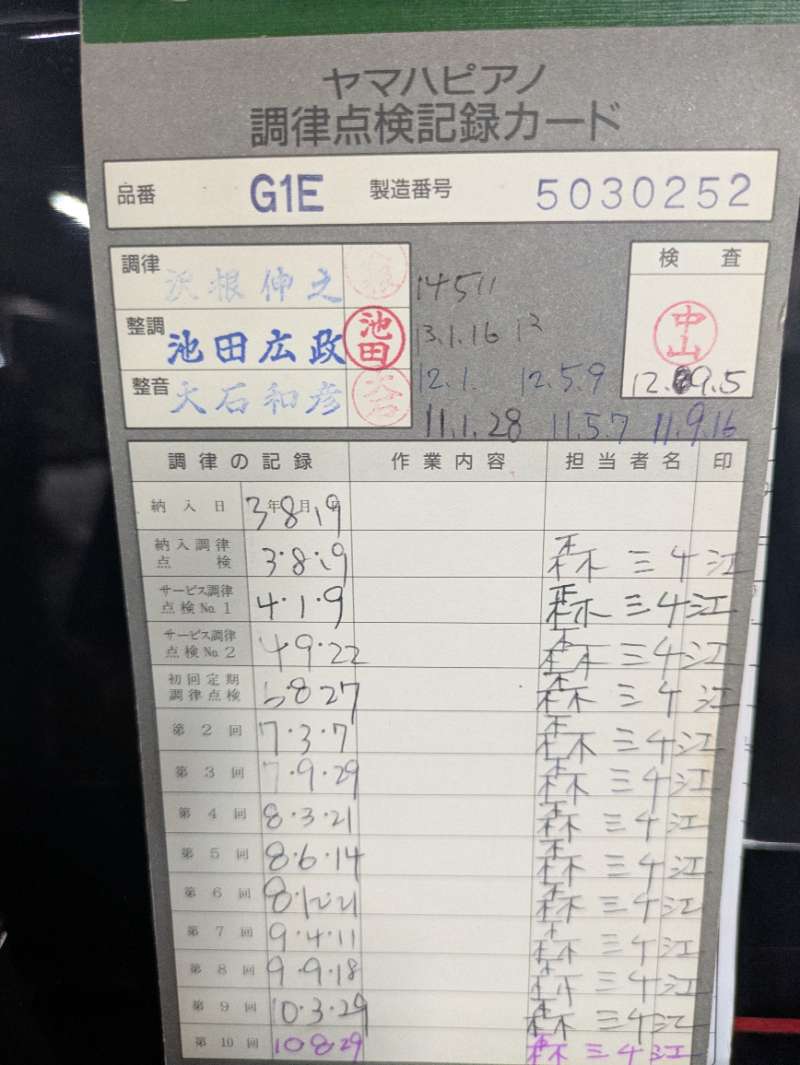 ヤマハピアノ
調律点検記録カード
品番 G1E 製造番号 5030252
調律 沢根伸之
整調 池田広政 池田
整音 大石和彦
14511
13.1.16
12.1. 12.5.9
11.1.28 11.5.7 11.9.16
検査
中山
12. 9.5
調律の記録 作業内容 担当者名 印
納入日 3年8月19
納入調律点検 3・8・19 森三千江
サービス調律点検No.1 4・1・9 森三千江
サービス調律点検No.2 4 9・22 森三千江
初回定期調律点検 8 27 森三千江
第2回 7・3・7 森三千江
第3回 7・9・29 森三千江
第4回 8・3・21 森三千江
第5回 8・6・14 森三千江
第6回 8・12・21 森三千江
第7回 9・4・11 森三千江
第8回 9・9・18 森三千江
第9回 10・3・29 森三千江
第10回 10 8・29 森三千江